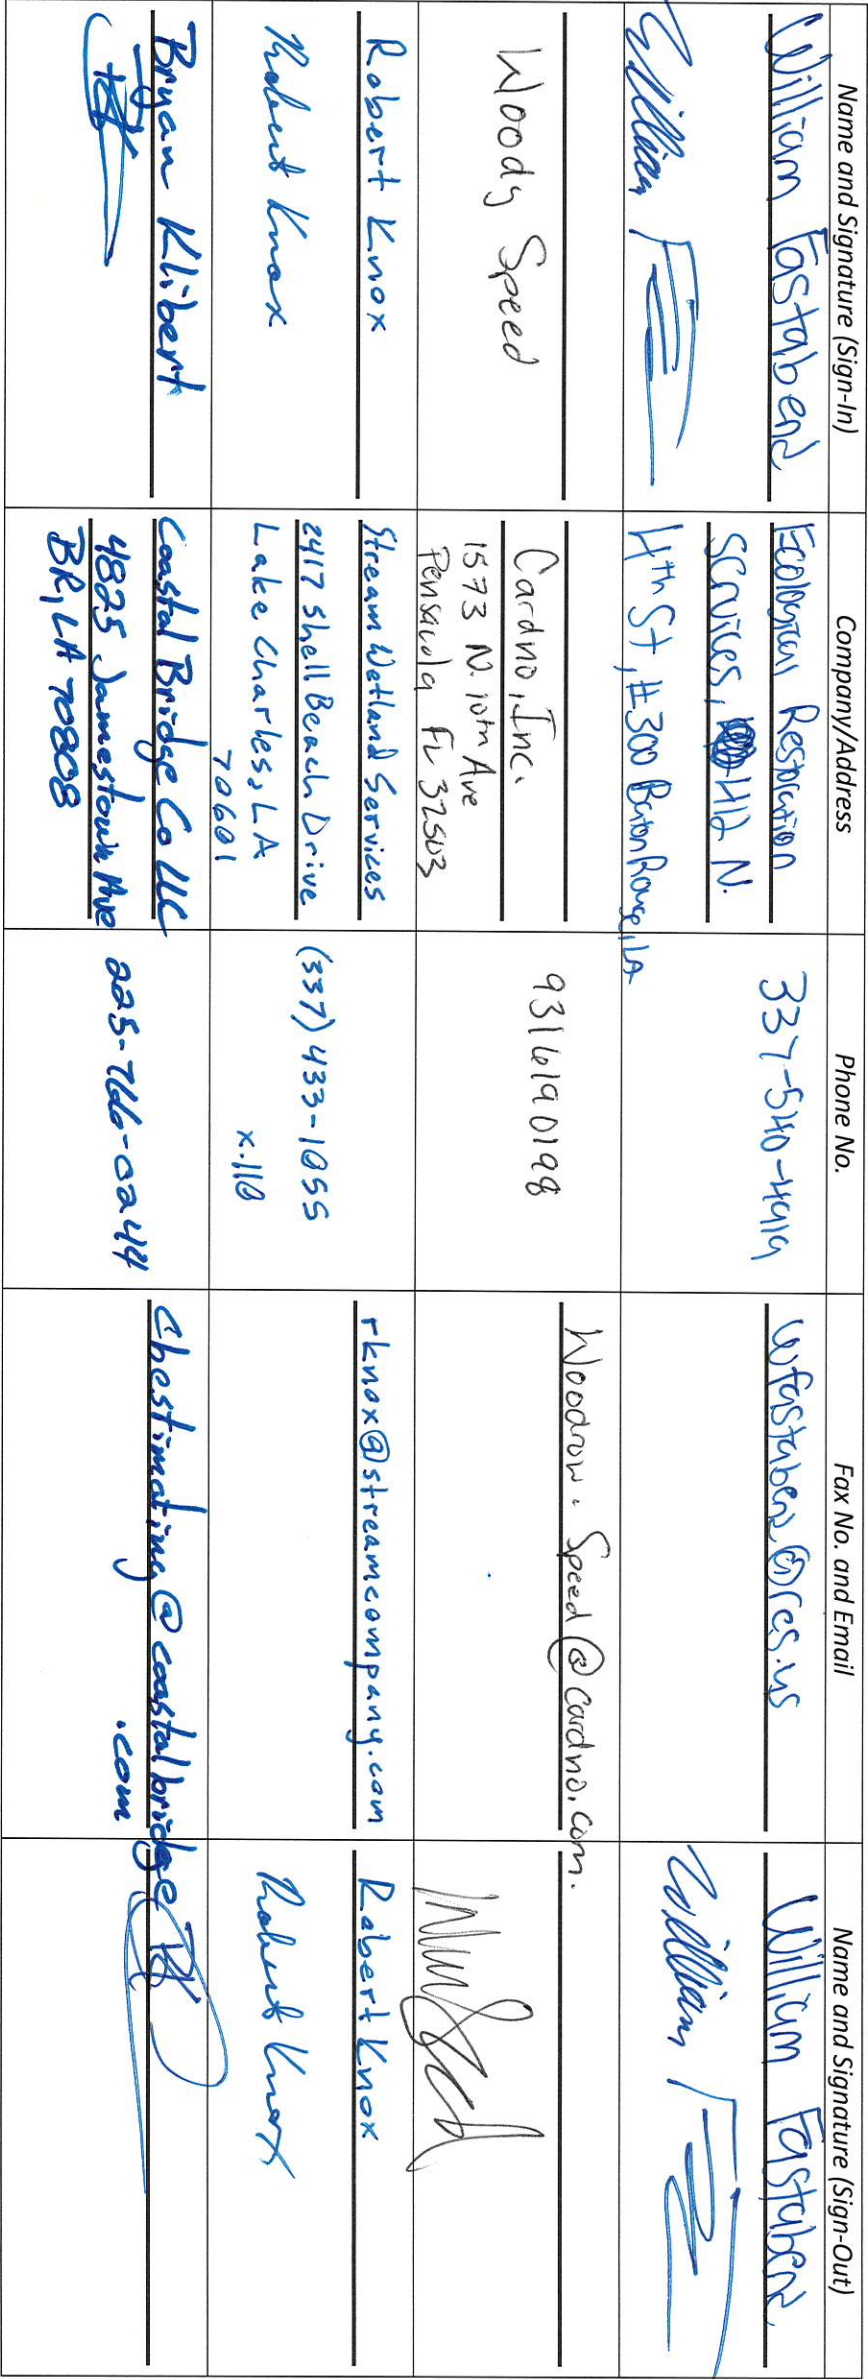 Name and Signature (Sign-In)
Company/Address
Phone No.
Fax No. and Email
Name and Signature (Sign-Out)
William Fastabend
William F
Ecological Restoration
Services, 412 N.
4th St, #300 Baton Rouge, LA
337-540-4919
wfastabend@res.us
William Fastabend
William F
Woody Speed
Cardno, Inc.
1573 N. 10th Ave
Pensacola FL 32503
9316190198
Woodrow.Speed@cardno.com.
Robert Knox
Robert Knox
Stream Wetland Services
2417 Shell Beach Drive
Lake Charles, LA
70601
(337) 433-1055
x.110
rknox@streamcompany.com
Robert Knox
Robert Knox
Bryan Klibert
Coastal Bridge Co LLC
4825 Jamestown Ave
BR, LA 70808
225-766-0244
Cbestimating@coastalbridge
.com